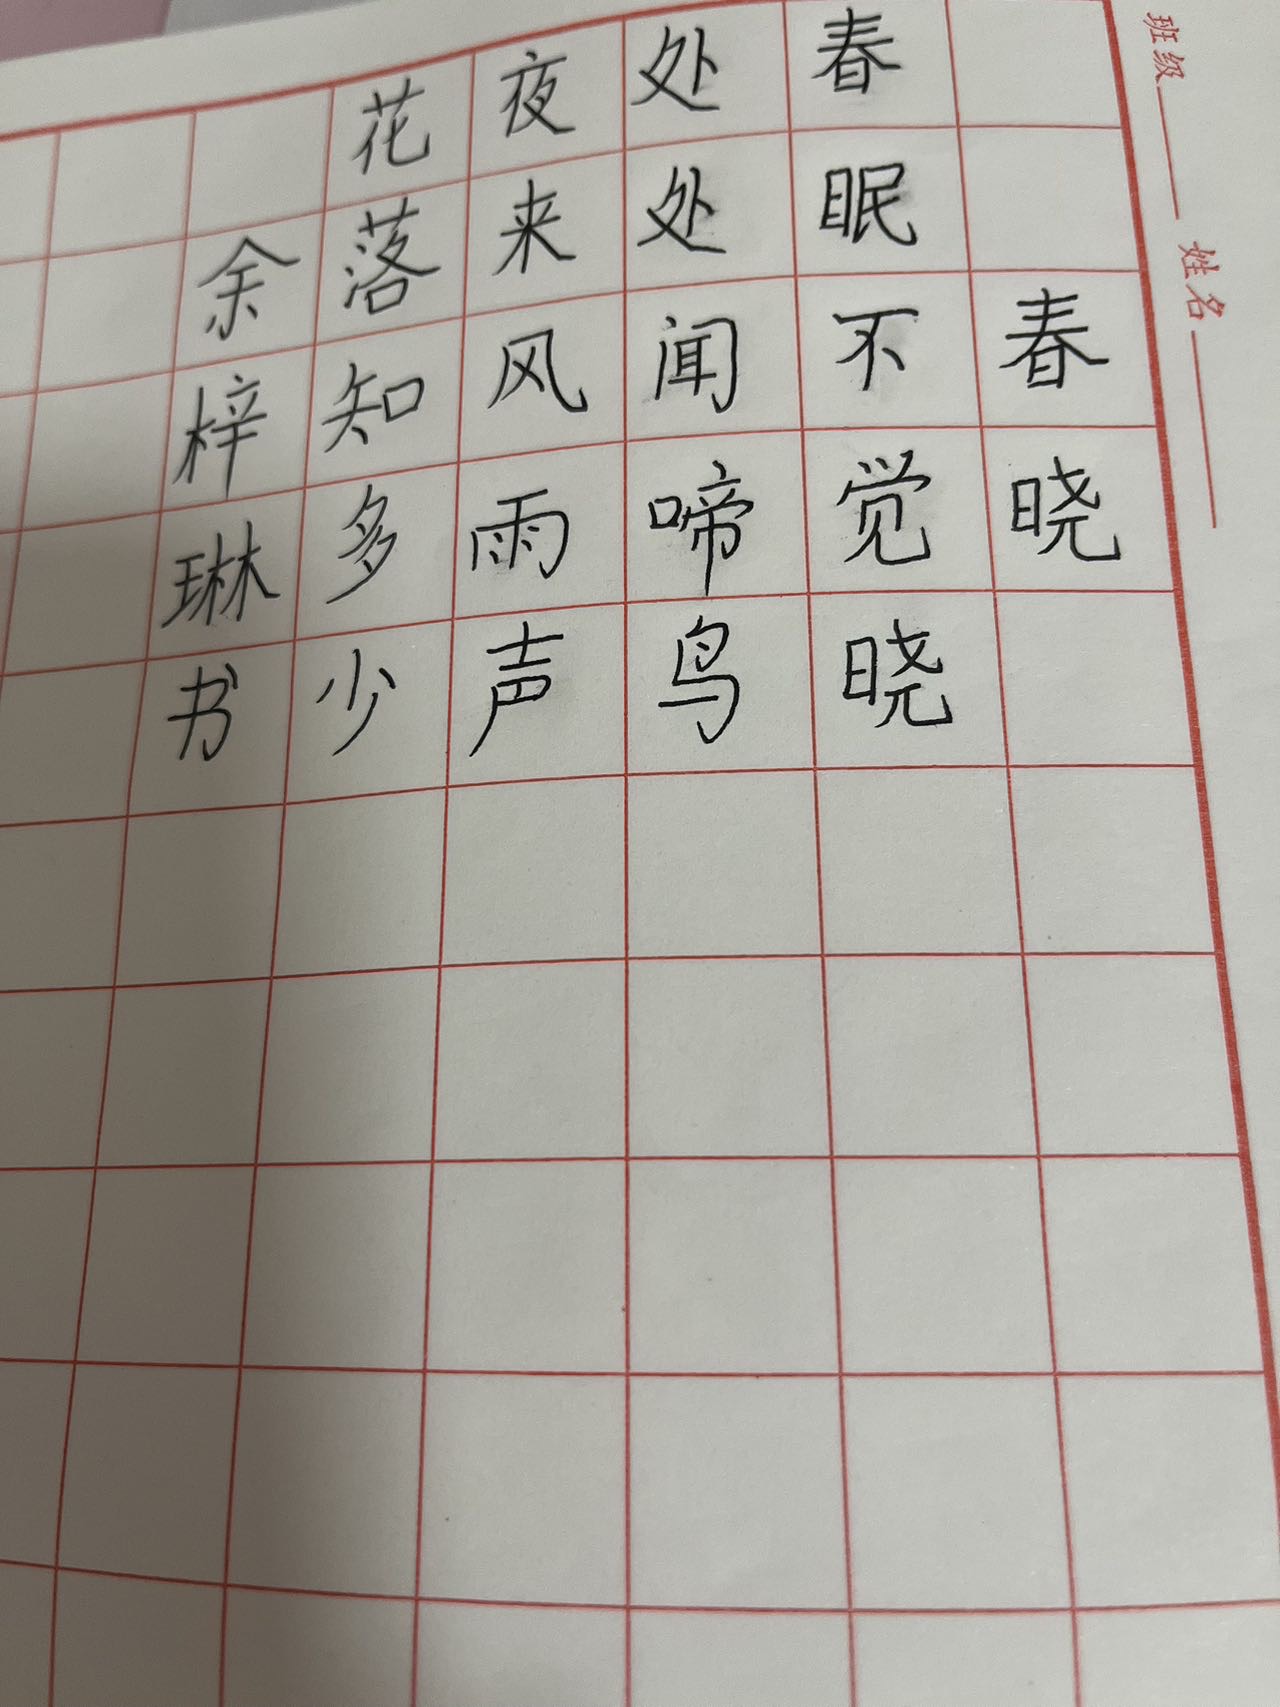 班级 姓名
春晓
春眠不觉晓
处处闻啼鸟
夜来风雨声
花落知多少
余梓琳书